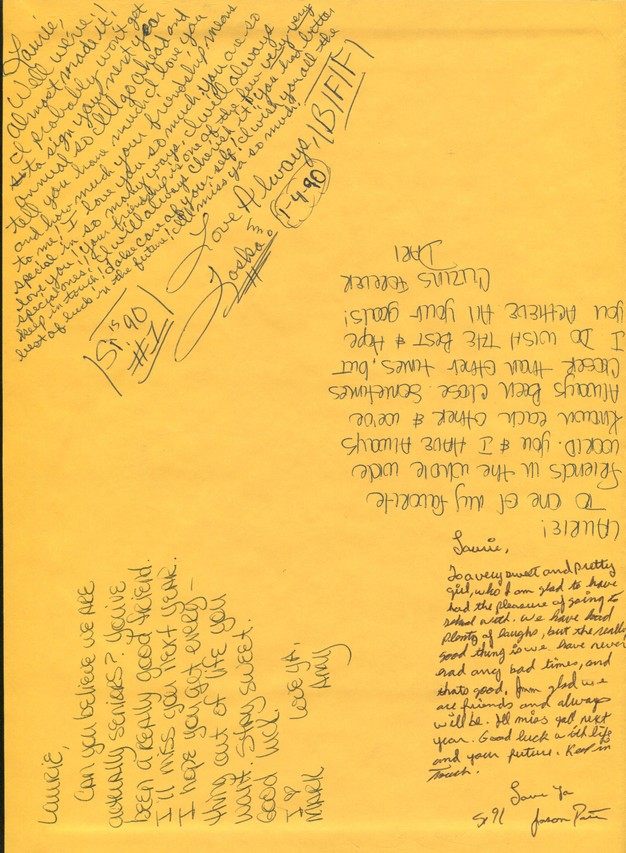 Laurie,
Well we've
almost made it!
I probably won't get
to sign your next year
annual so I'll go ahead and
tell you how much I love you
and how much your friendship means
to me, I love you so much, you are so
special in so many ways, I will always
love you! Your friendship is one of the few very very
special ones! I will always cherish it! You had better
keep in touch! Take care of yourself, I wish you all the
best of luck in the future! I'll miss ya so much.
Love Always, B/F/F/
Toska
1-4-90
Sr. is 90
#1
LAURIE!
To one of my favorite
friends in the whole wide
world. You & I have always
known each other & we've
always been close. Sometimes
closer than other times, but
I do wish the best & hope
you achieve all your goals!
Cuzins Forever
Laurie,
To a very sweet and pretty
girl, who I am glad to have
had the pleasure of going to
school with. We have had
plenty of laughs, but the really
good thing is we have never
had any bad times, and
thats good. I'm glad we
are friends and always
will be. I'll miss yall next
year. Good luck with life
and your future. Keep in
Touch.
Love Ya
Sr 91 Jason
Laurie,
Can you believe we are
actually seniors? You've
been a really good friend.
I'll miss you next year.
I hope you get every-
thing out of life you
want. Stay sweet.
Good luck.
Love ya,
Amy
I ♡
Mark